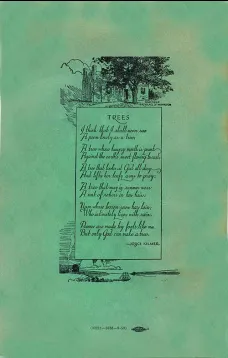 TREES
I think that I shall never see
A poem lovely as a tree.
A tree whose hungry mouth is prest
Against the earth's sweet flowing breast;
A tree that looks at God all day,
And lifts her leafy arms to pray;
A tree that may in summer wear
A nest of robins in her hair;
Upon whose bosom snow has lain;
Who intimately lives with rain.
Poems are made by fools like me,
But only God can make a tree.
—JOYCE KILMER.